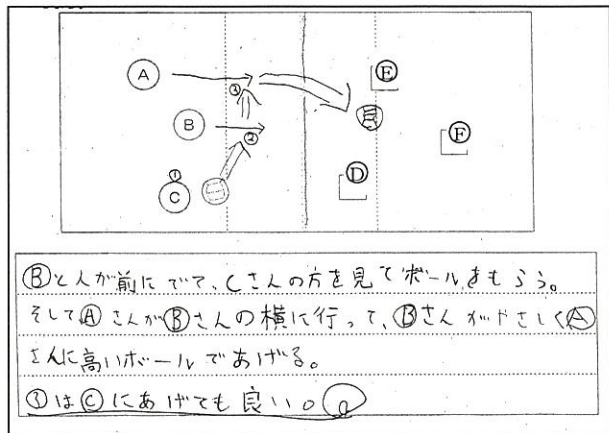 A
③
E
B
②
F
①
C
D
Ⓑと人が前にでて、Cさんの方を見てボールをもらう。
そしてⒶさんがⒷさんの横に行って、ⒷさんがやさしくⒶ
さんに高いボールであげる。
③はⒸにあげても良い。